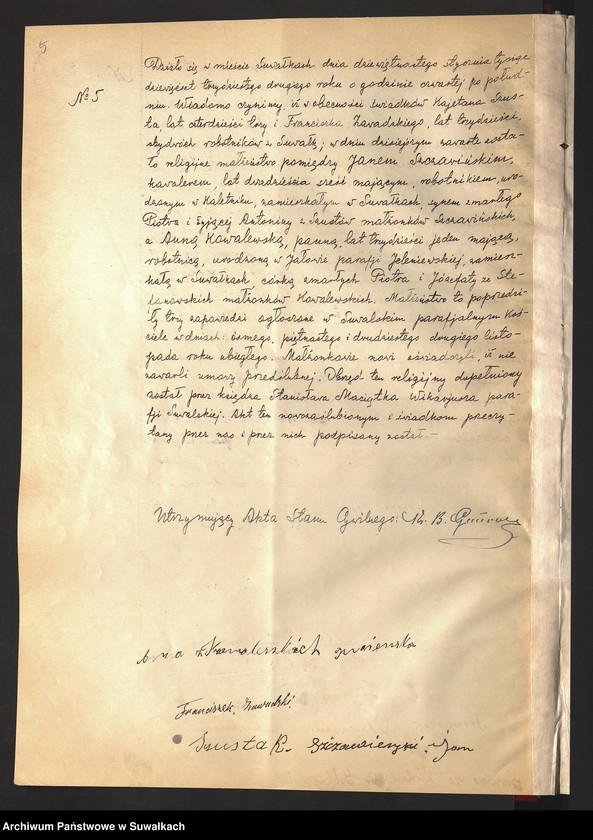 5
№ 5
Działo się w mieście Suwałkach dnia dziewiętnastego stycznia tysiąc
dziewięćset trzydziestego drugiego roku o godzinie czwartej po połud-
niu. Wiadomo czynimy, iż w obecności świadków Kajetana Szus-
ta, lat czterdzieści trzy i Franciszka Zawadzkiego, lat trzydzieści,
obydwóch robotników z Suwałk, w dniu dzisiejszym zawarte zosta-
ło religijne małżeństwo pomiędzy Janem Szczawińskim,
kawalerem, lat dwadzieścia sześć mającym, robotnikiem, uro-
dzonym w Kaletniku, zamieszkałym w Suwałkach, synem zmarłego
Piotra i żyjącej Antoniny z Szustów małżonków Szczawińskich,
a Anną Kowalewską, panną, lat trzydzieści jeden mającą,
robotnicą, urodzoną w Jałowie parafji Jeleniewskiej, zamiesz-
kałą w Suwałkach, córką zmarłych Piotra i Józefaty ze Ste-
fanowskich małżonków Kowalewskich. Małżeństwo to poprzedzi-
ły trzy zapowiedzi ogłoszone w Suwalskim parafjalnym Koś-
ciele w dniach: ósmego, piętnastego i dwudziestego drugiego listo-
pada roku ubiegłego. Małżonkowie nowi oświadczyli, iż nie
zawarli umowy przedślubnej. Obrzęd ten religijny dopełniony
został przez księdza Stanisława Maciątka Wikarjusza para-
fji Suwalskiej. Akt ten nowozaślubionym i świadkom przeczy-
tany przez nas i przez nich podpisany został.
Utrzymujący Akta Stanu Cywilnego: Ks. B.
Anna z
Franciszek Zawadzki
Szusta K. Szczawieńszki Jan
Archiwum Państwowe w Suwałkach